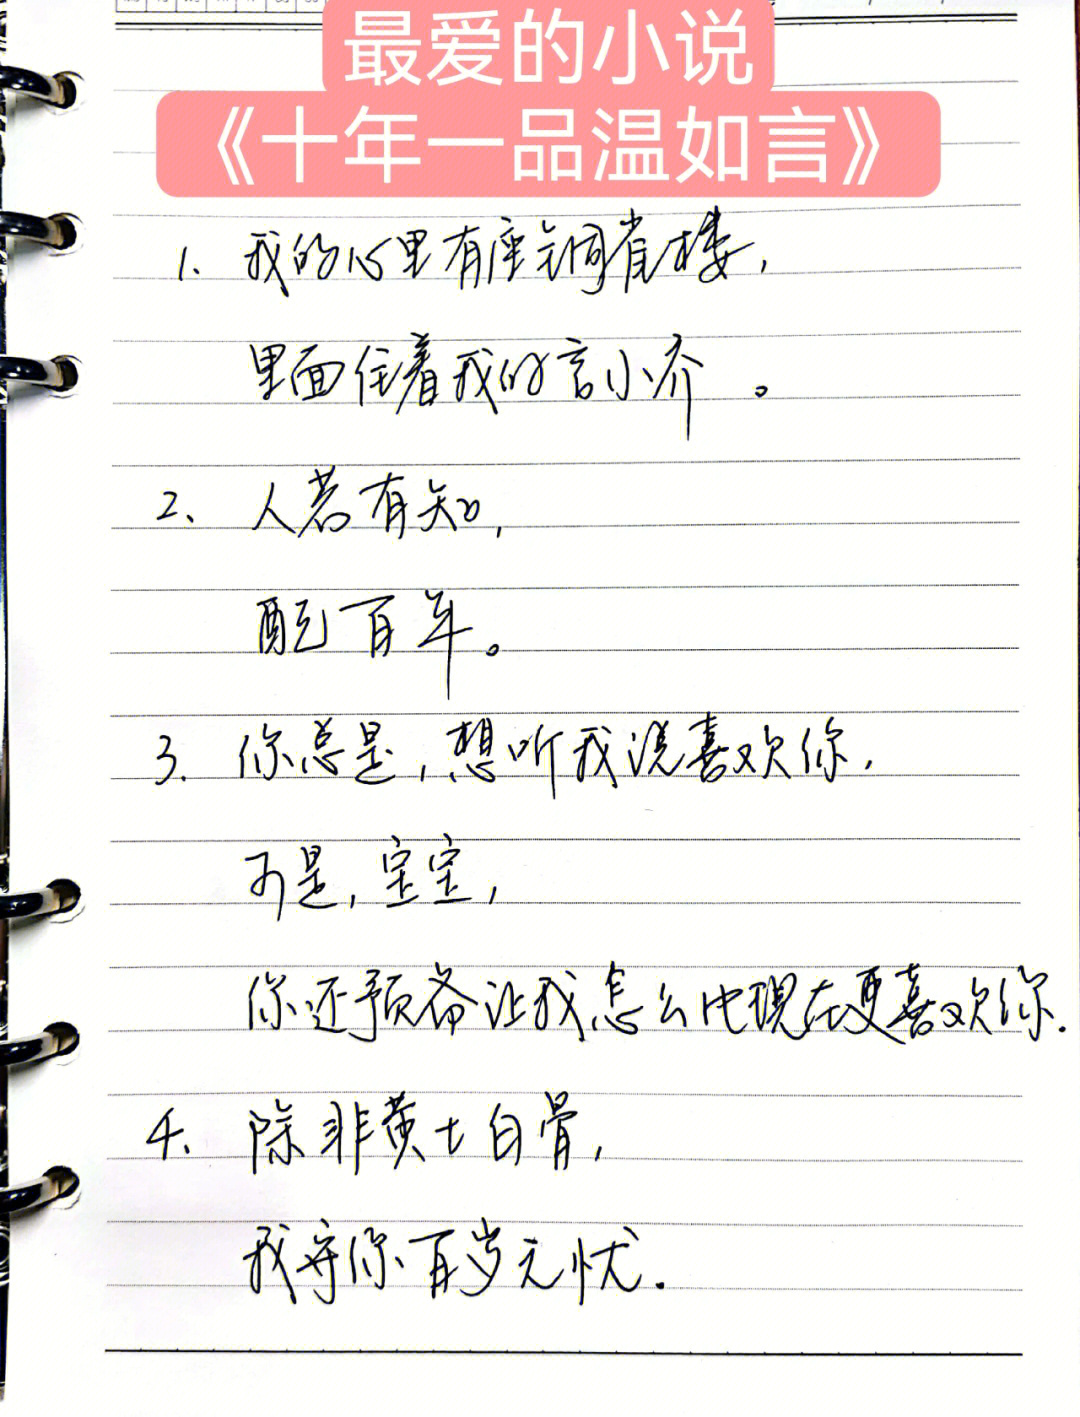 最爱的小说
《十年一品温如言》
1. 我的心里有座铜雀楼,
里面住着我的言小乔。
2、人若有知,
配百年。
3. 你总是,想听我说喜欢你,
可是,宝宝,
你还预备让我怎么比现在更喜欢你.
4、除非黄土白骨,
我守你百岁无忧.